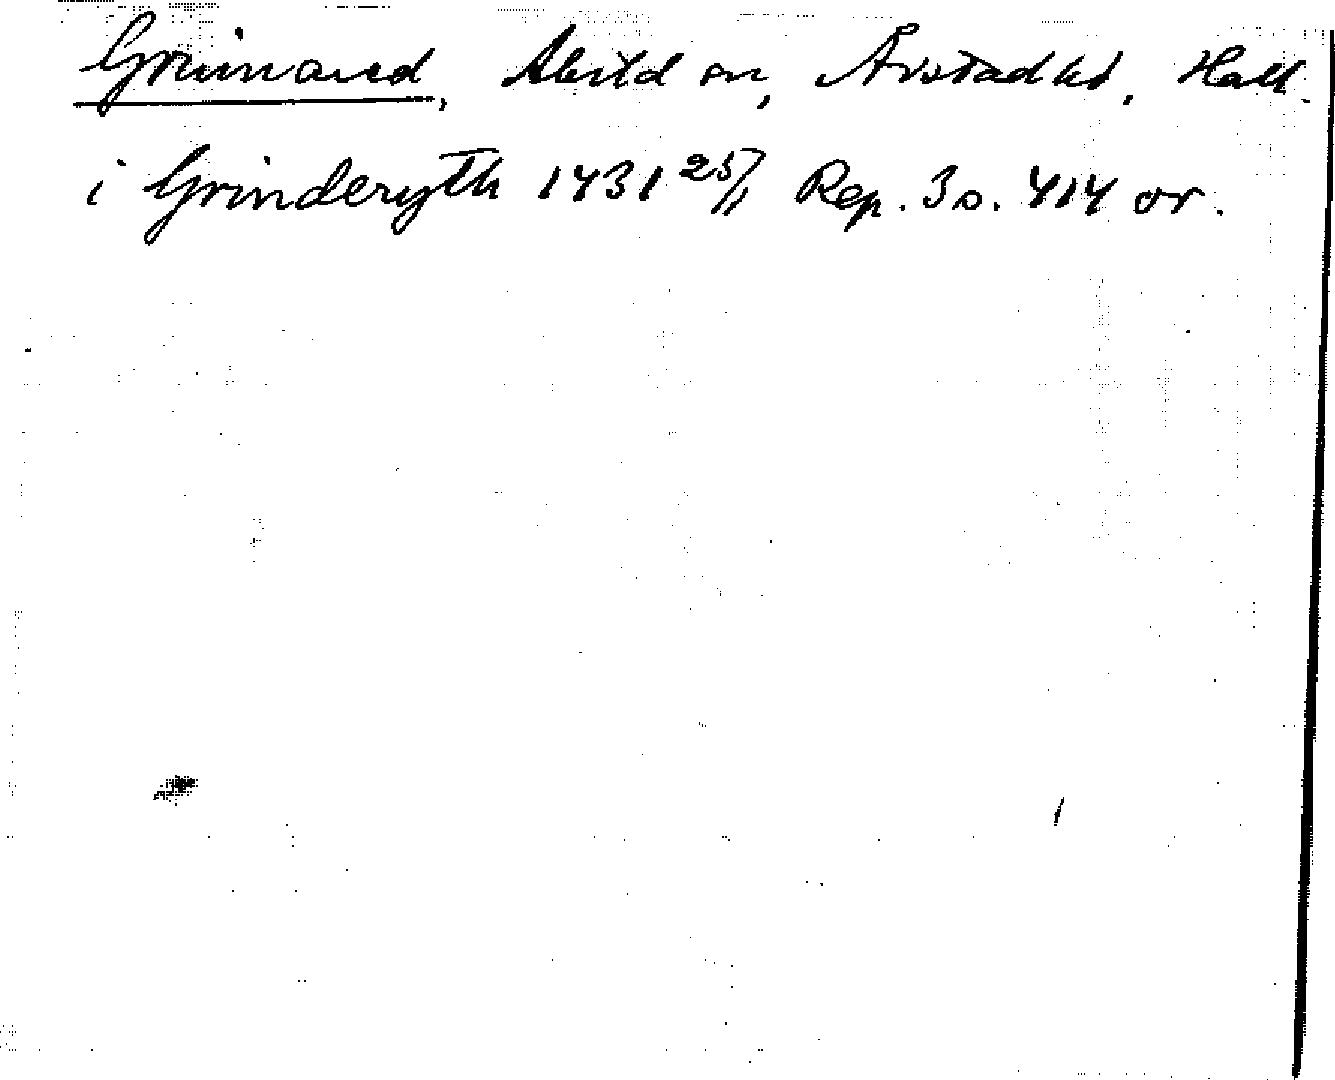 Grimared, Abild sn, Årstad hd, Hall.
i Grinderyth 1431 25/11 Rep. 3 s. 414 or.